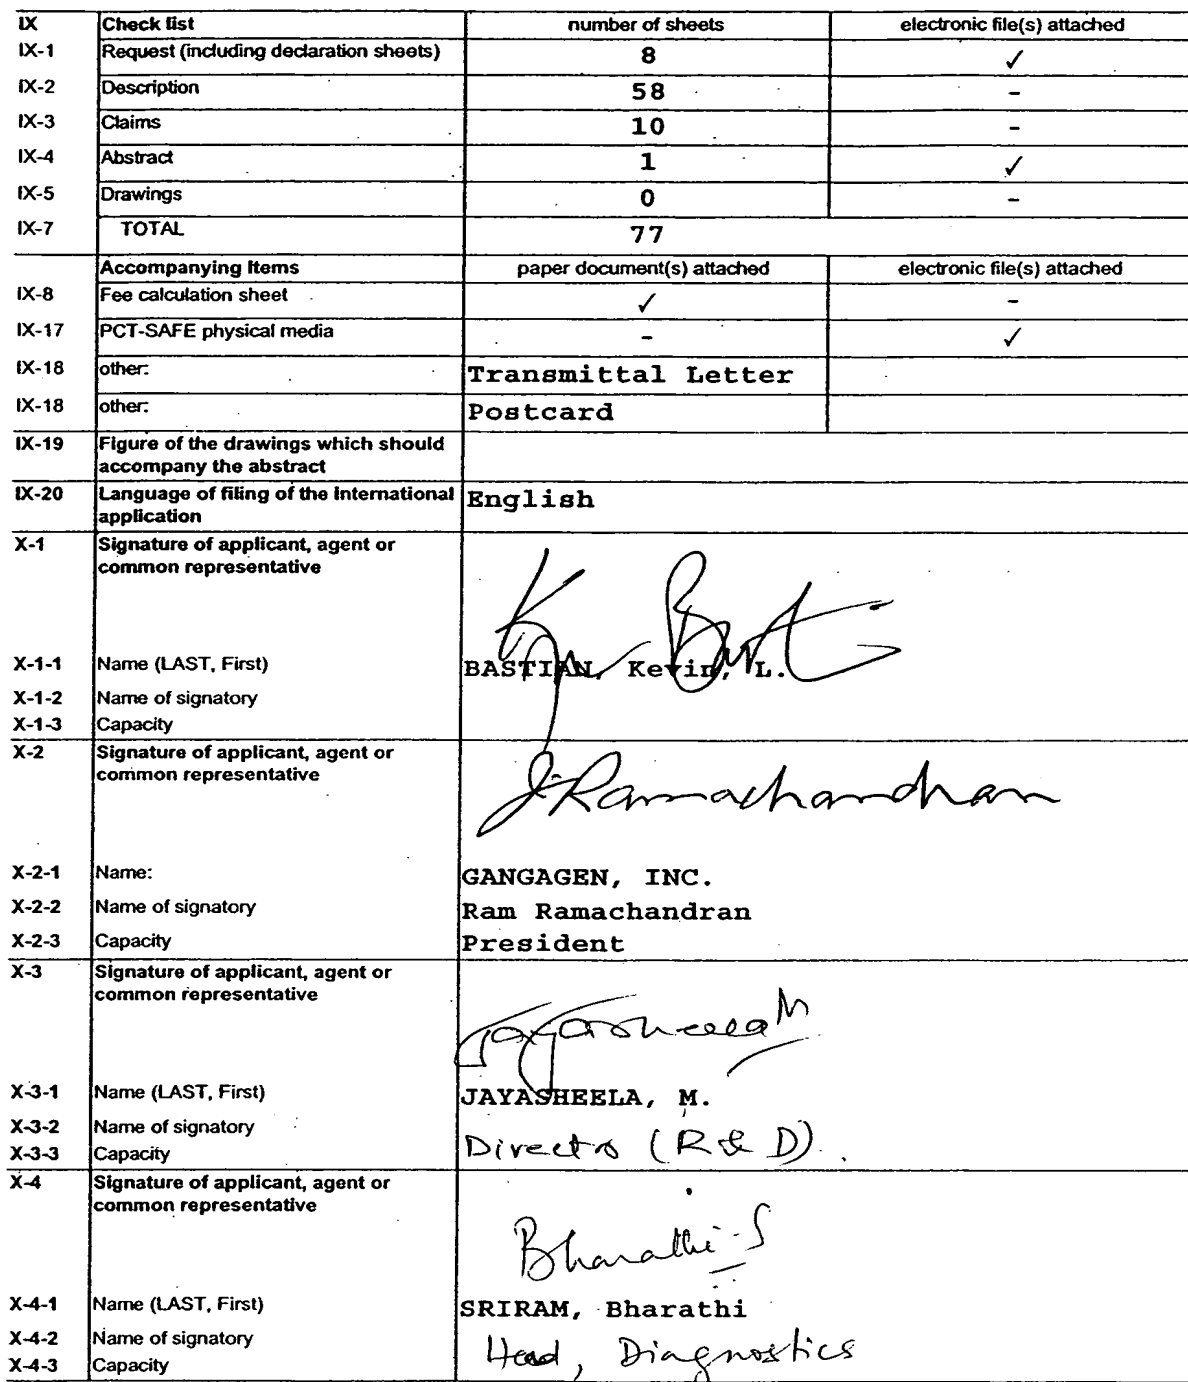 IX Check list number of sheets electronic file(s) attached
IX-1 Request (including declaration sheets) 8 ✓
IX-2 Description 58 -
IX-3 Claims 10 -
IX-4 Abstract 1 ✓
IX-5 Drawings 0 -
IX-7 TOTAL 77
Accompanying Items paper document(s) attached electronic file(s) attached
IX-8 Fee calculation sheet ✓ -
IX-17 PCT-SAFE physical media - ✓
IX-18 other: Transmittal Letter
IX-18 other: Postcard
IX-19 Figure of the drawings which should
accompany the abstract
IX-20 Language of filing of the International English
application
X-1 Signature of applicant, agent or
common representative
X-1-1 Name (LAST, First) BASTIAN, Kevin, L.
X-1-2 Name of signatory
X-1-3 Capacity
X-2 Signature of applicant, agent or
common representative
J. Ramachandran
X-2-1 Name: GANGAGEN, INC.
X-2-2 Name of signatory Ram Ramachandran
X-2-3 Capacity President
X-3 Signature of applicant, agent or
common representative
Jayasheela M
X-3-1 Name (LAST, First) JAYASHEELA, M.
X-3-2 Name of signatory
X-3-3 Capacity Director (R & D).
X-4 Signature of applicant, agent or
common representative
Bharathi-S
X-4-1 Name (LAST, First) SRIRAM, Bharathi
X-4-2 Name of signatory Head, Diagnostics
X-4-3 Capacity